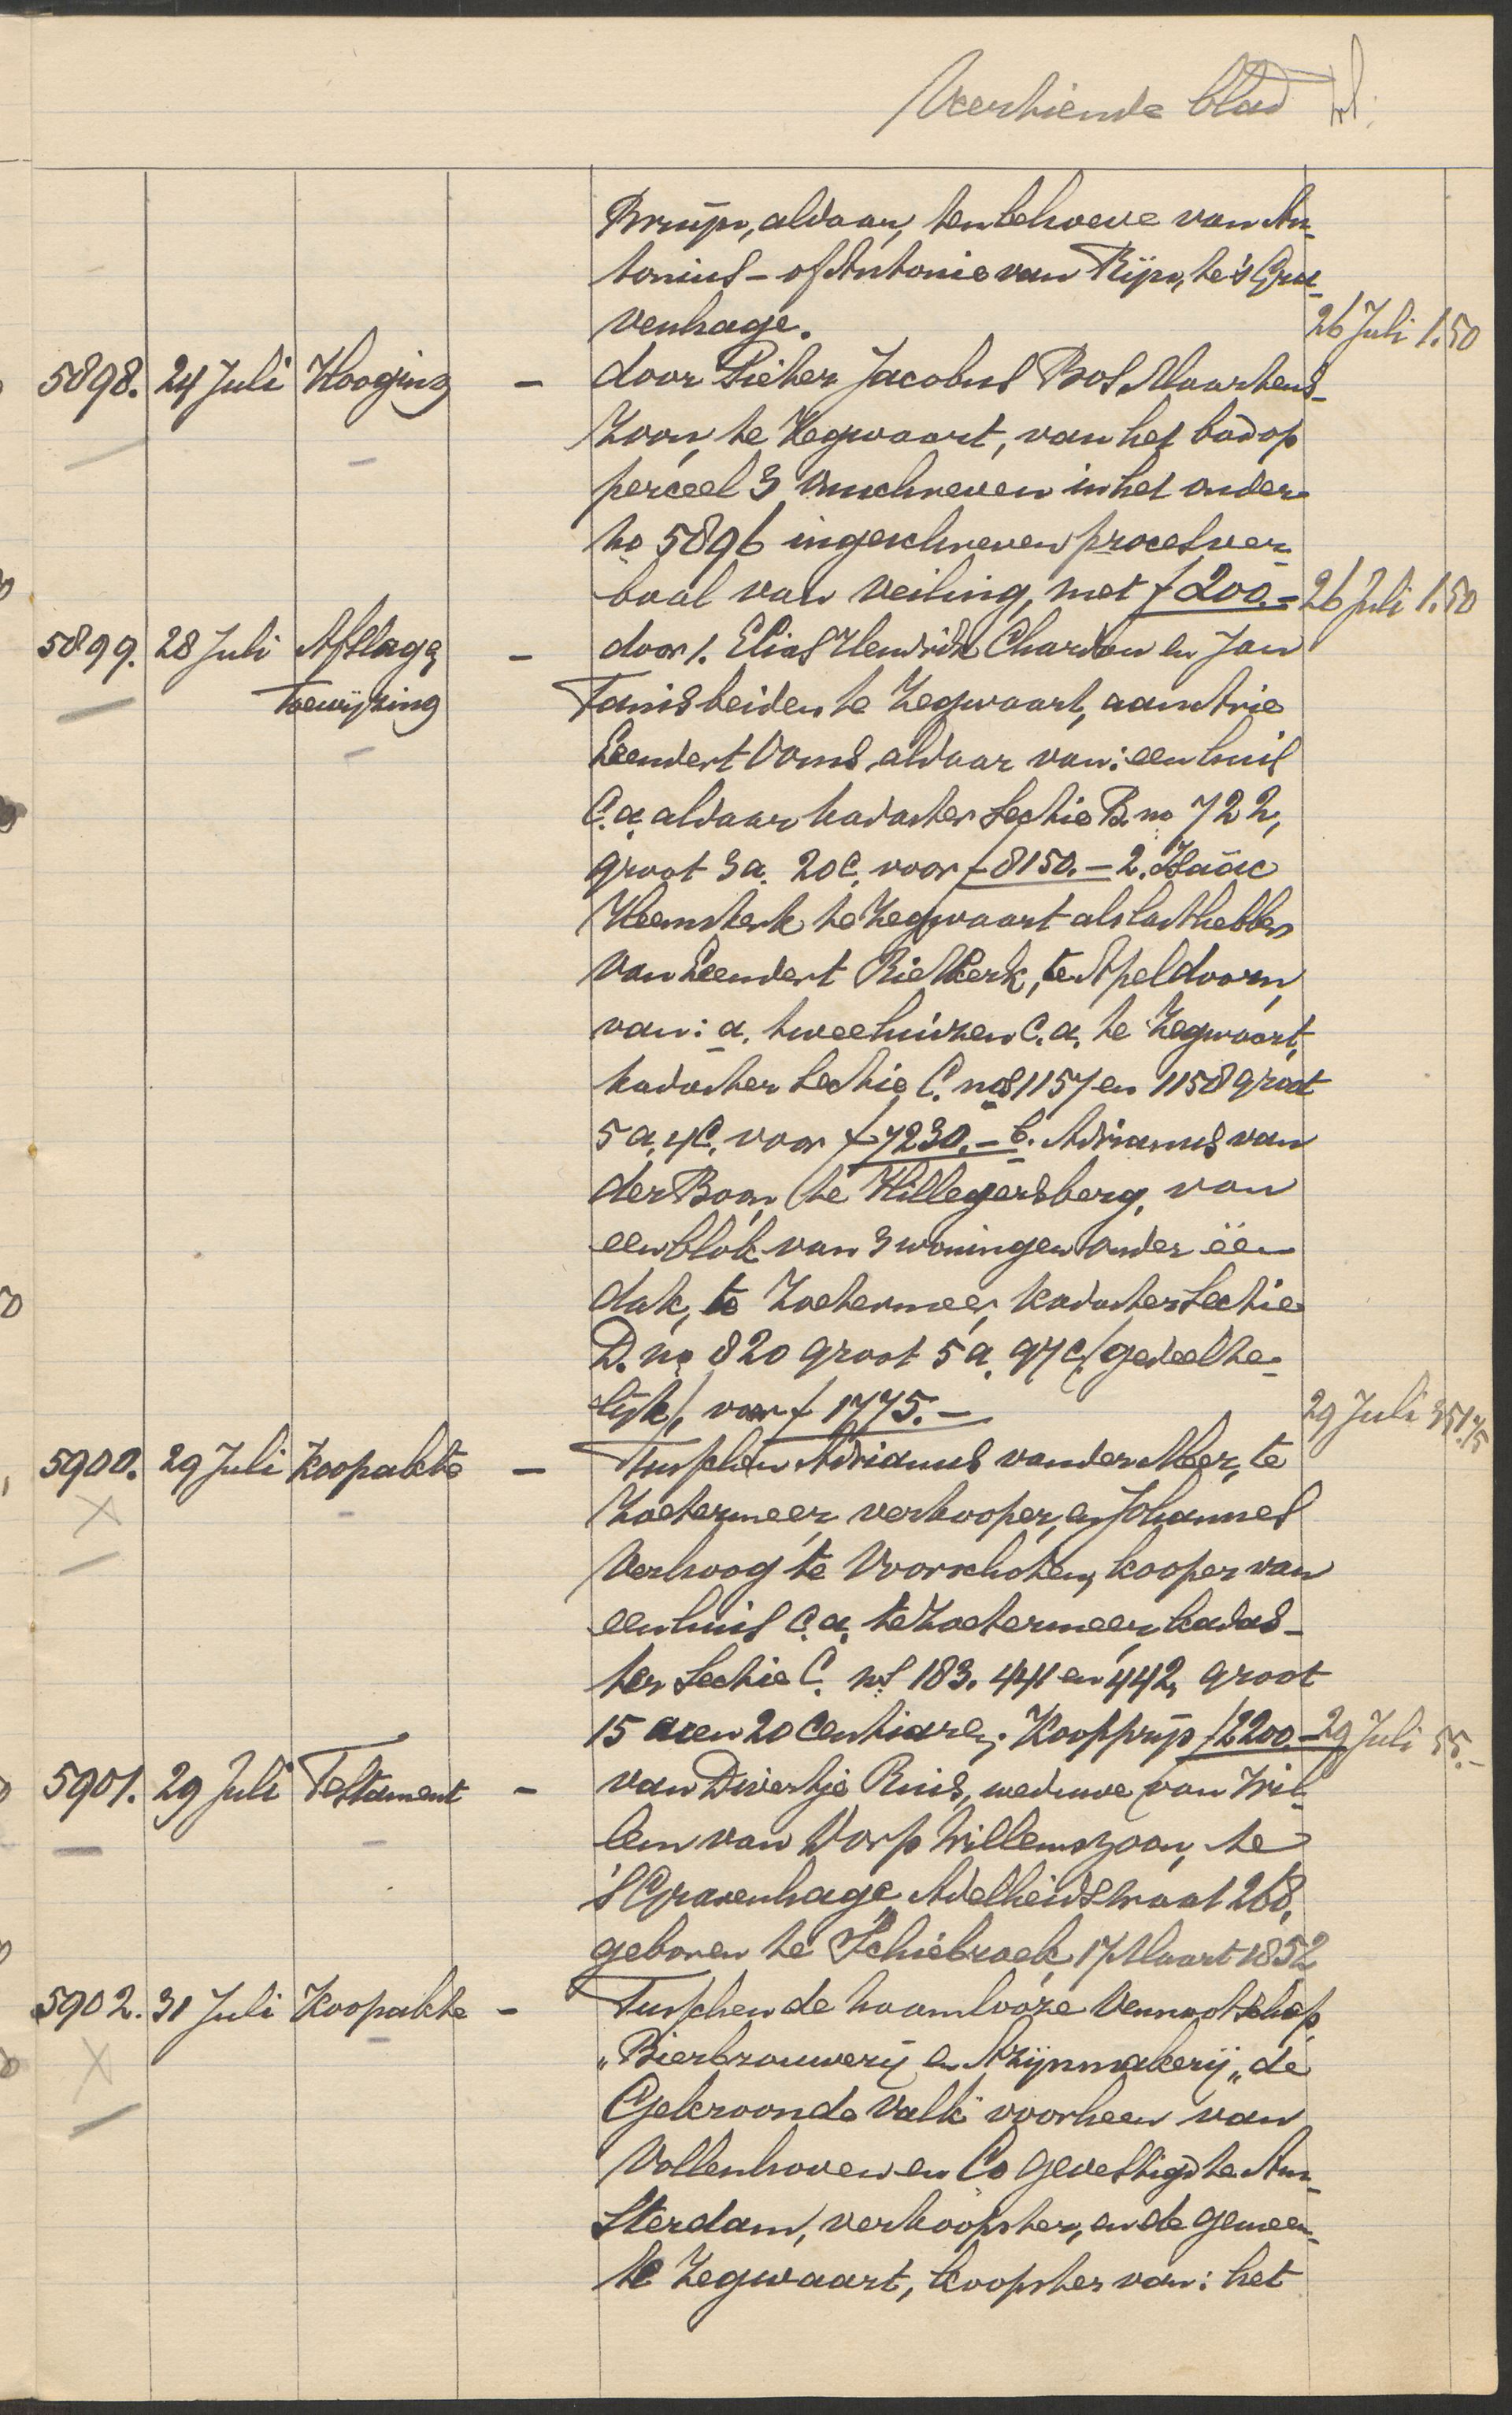 Veertiende blad
Bruijn, aldaar, ten behoeve van An-
tonius - of Antonie van Rijn, te 's Gra-
venhage. 26 Juli 1.50
5898. 24 Juli Hooging - door Pieter Jacobus Bos Maartens-
zoon, te Zegwaart, van het bod op
perceel 3 omschreven in het onder
no 5896 ingeschreven procesver-
baal van veiling, met f 200.- 26 Juli 1.50
5899. 28 Juli Afslag & - door 1. Elias Hendrik Chardon en Jan
Toewijzing Tanis beiden te Zegwaart, aan Arie
Leendert Ooms aldaar van: een huis
c.a. aldaar kadaster Sectie B. no 722,
groot 3 a. 20 c. voor f 8150.- 2. Isaäc
Heemskerk te Zegwaart als lasthebber
van Leendert Rietkerk, te Apeldoorn,
van: a. twee huizen c.a. te Zegwaart,
kadaster Sectie C. nos 1157 en 1158 groot
5 a. 4 c. voor f 7230.- b. Adrianus van
der Boon te Hillegersberg, van
een blok van 3 woningen onder één
dak, te Zoetermeer, kadaster Sectie
D. no 820 groot 5 a. 97 c. /gedeelte-
lijk/, voor f 1775.- 29 Juli 351.75
5900. 29 Juli Koopakte - Tusschen Adrianus van der Meer, te
Zoetermeer, verkooper, en Johannes
Verhoog te Voorschoten, kooper van
een huis c.a. te Zoetermeer, kadas-
ter Sectie C. nos 183. 441 en 442, groot
15 aren 20 centiaren; Koopprijs f 2200.- 29 Juli 55.-
5901. 29 Juli Testament - van Divertje Ruis, weduwe van Wil-
lem van Dorp Willemszoon, te
's Gravenhage, Adelheidstraat 268,
geboren te Schiebroek, 17 Maart 1852
5902. 31 Juli Koopakte - Tusschen de naamlooze Vennootschap
„Bierbrouwerij en Azijnmakerij „de
Gekroonde Valk" voorheen van
Vollenhoven en Co gevestigd te Am-
sterdam, verkoopster, en de gemeen-
te Zegwaart, koopster van: het